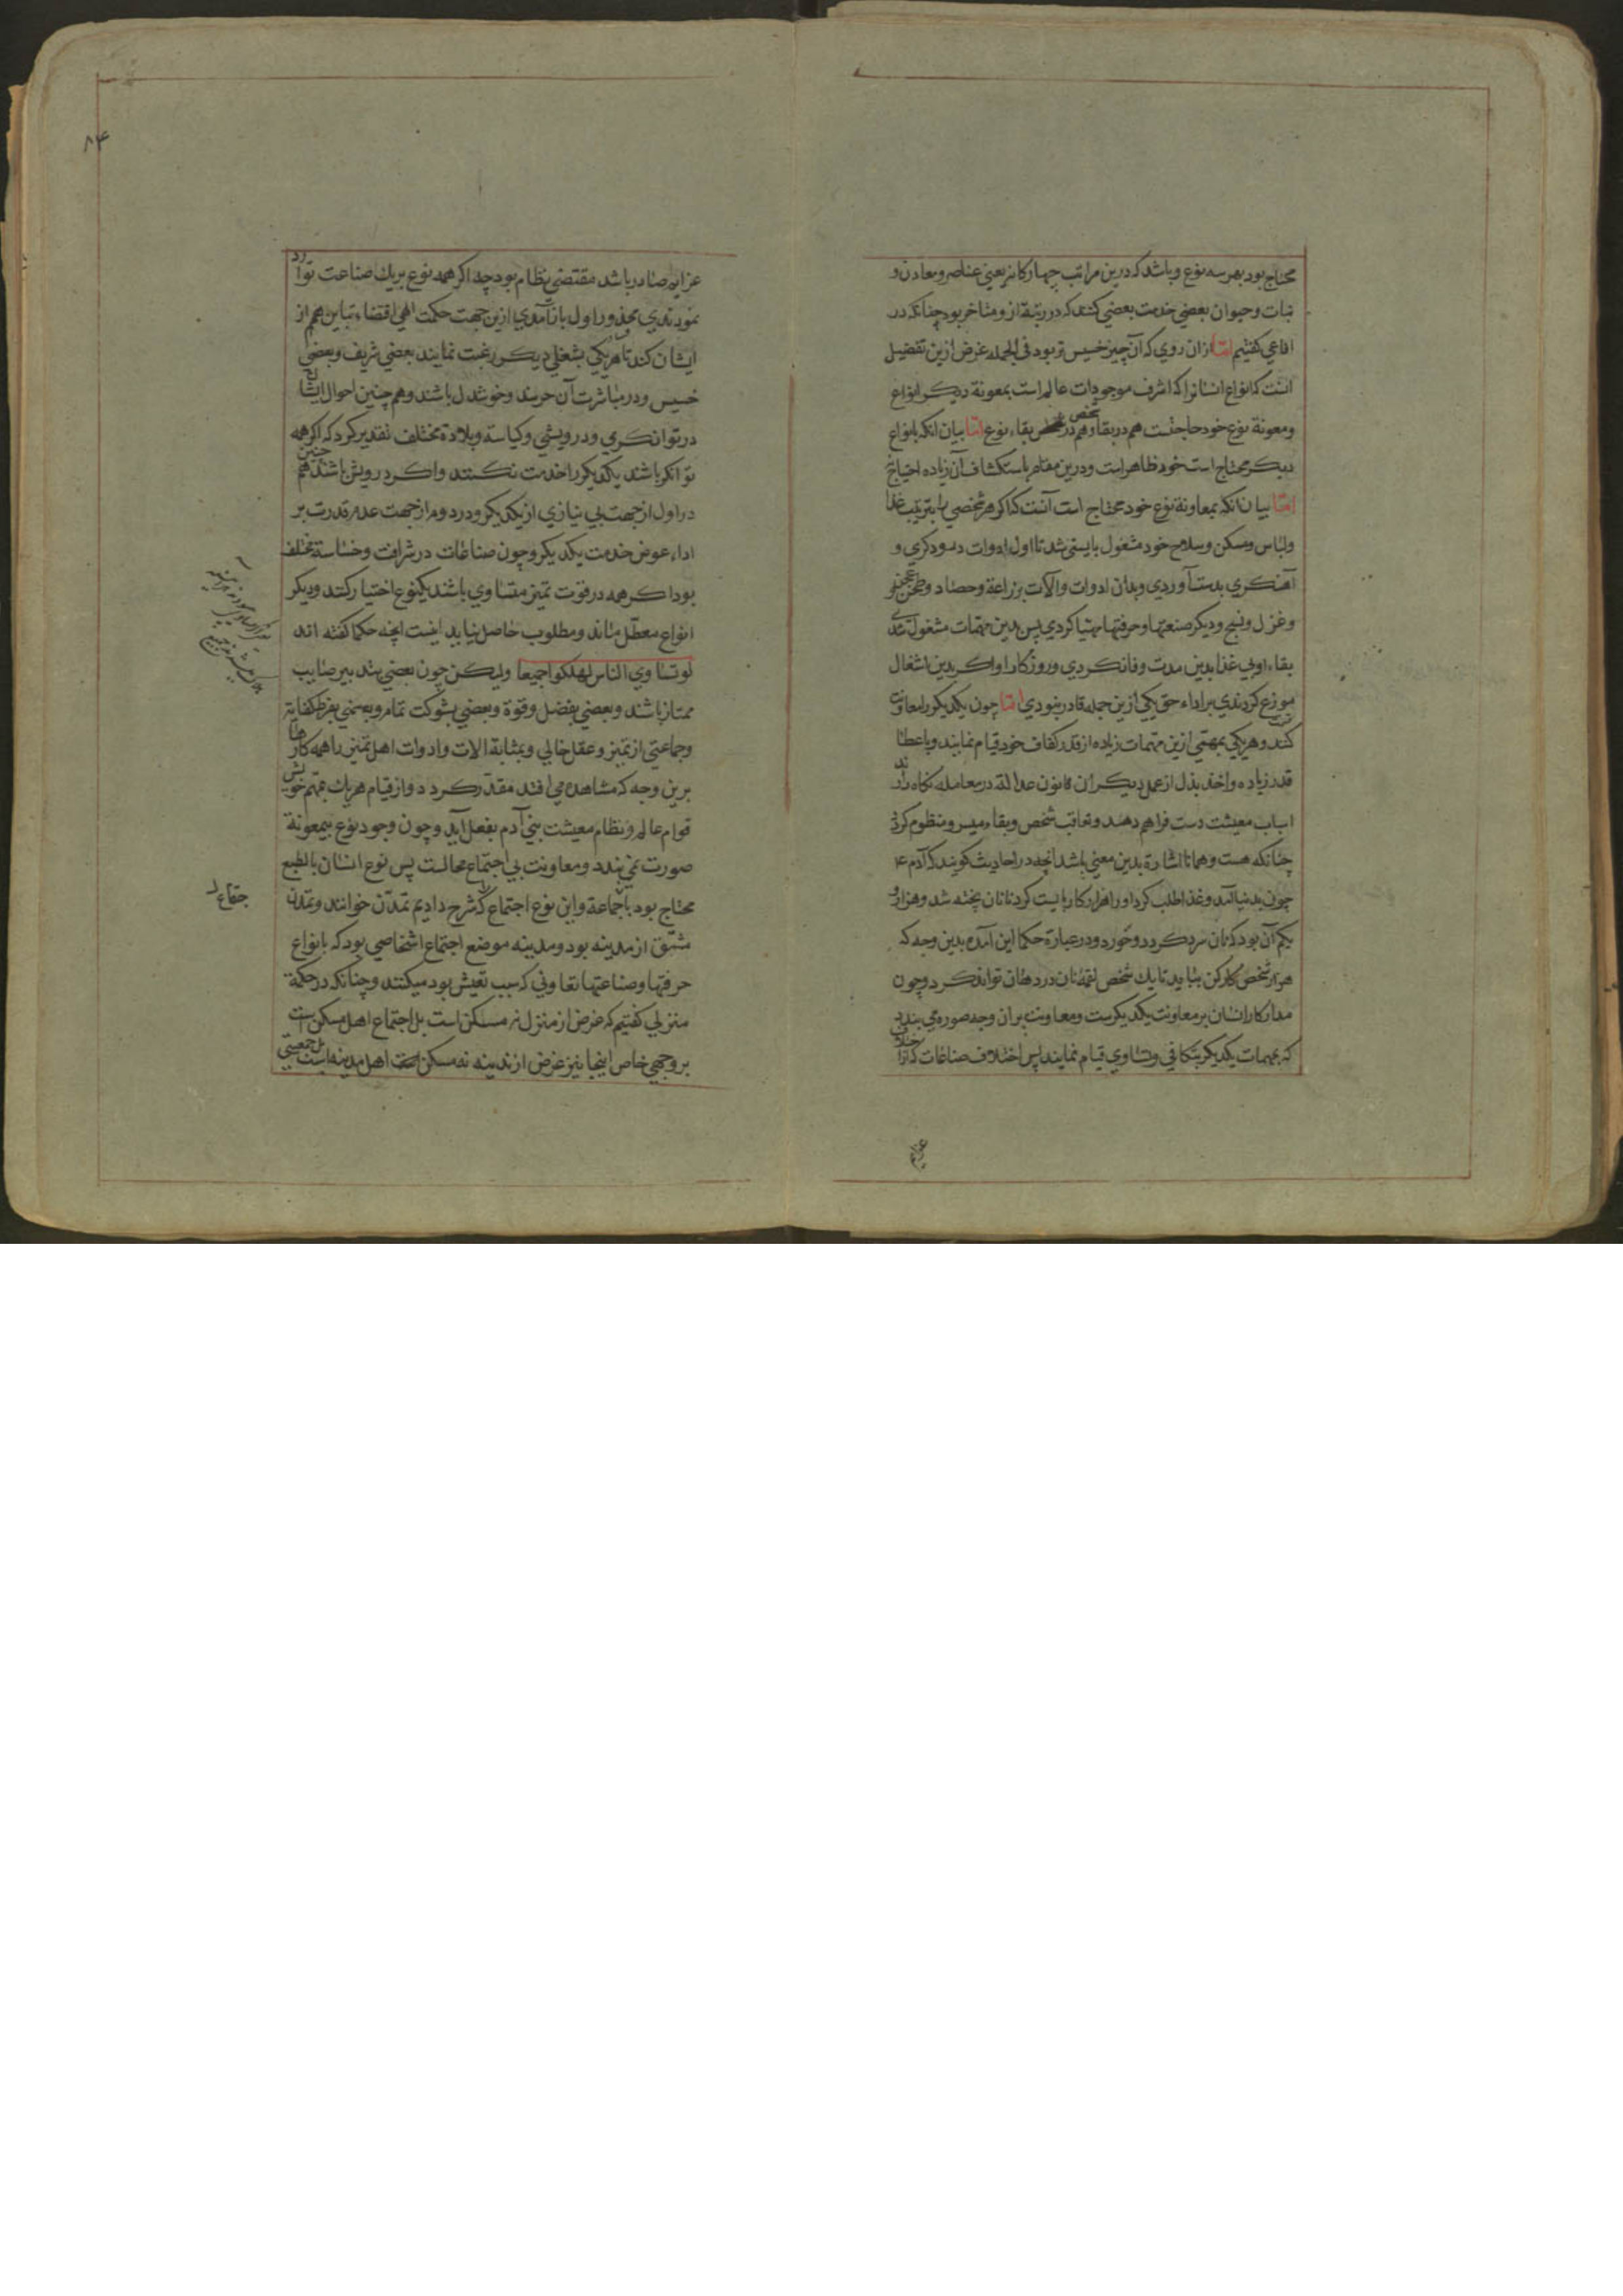 محتاج بود بهر سه نوع و باشد که درین مراتب چهارکانه یعنی عناصر و معادن و
نبات و حیوان بعضی خدمت بعضی کنند که در رتبت ازو متاخر بود چنانکه در
افاعی کفتیم اما ازان روی که آن چیز خسیس تر بود فی الجمله غرض ازین تفضیل
انست که انواع انسانرا که اشرف موجودات عالم است بمعونة دیکر انواع
ومعونة نوع خود حاجتست هم در بقاء شخص و هم در بقاء نوع اما بیان انکه بانواع
دیکر محتاج است خود ظاهر است و درین مقام باستکشاف آن زیاده احتیاج
اما بیان انکه بمعاونة نوع خود محتاج است آنست که اکر هر شخصی را بترتیب غذا
ولباس ومسکن وسلاح خود مشغول بایستی شد تا اول ادوات درودکری و
آهنکری بدست آوردی و بدان ادوات والآت زراعة وحصاد وطحن وعجن
وغزل ونسج ودیکر صنعتها وحرفتها مهیا کردی پس بدین مهمات مشغول شدی
بقاء او بی غذا بدین مدت وفا نکردی و روزکار او اکر بدین اشغال
موزع کردندی بر اداء حق یکی ازین جمله قادر نبودی اما چون یکدیکر را معاونت
کنند و هر یکی بمهمی ازین مهمات زیاده از قدر کفاف خود قیام نمایند و باعطاء
قدر زیاده واخذ بذل از عمل دیکران قانون عدالة در معامله نکاه دارند
اسباب معیشت دست فراهم دهد و تعاقب شخص و بقاء میسر و منظوم کردد
چنانکه هست و همانا اشارة بدین معنی باشد انچه در احادیث کویند که آدم ع
چون بدنیا آمد وغذا طلب کرد او را هزار کار بایست کرد تا نان پخته شد و هزار و
یکم آن بود که نان سرد کردد و خورد و در عبارة حکما این آمده بدین وجه که
هزار شخص کارکن بباید تا یك شخص لقمه نان در دهان تواند کرد و چون
مدار کار انسان بر معاونت یکدیکرست و معاونت بران وجه صوره می بندد
که بمهمات یکدیکر بتکافی و تساوی قیام نمایند پس اختلاف صناعات که از اختلاف
عزایم
۸۴
عزایم صادر باشد مقتضی نظام بود چه اکر همه نوع بر یك صناعت توارد
نمودندی محذور اول باز آمدی ازین جهت حکمت الهی اقتضاء تباین همم از
ایشان کند تا هر یکی بشغلی دیکر رغبت نمایند بعضی شریف و بعضی
خسیس و در مباشرت آن خرسند و خوشدل باشند و هم چنین احوال ایشان
در توانکری و درویشی و کیاسة و بلادة مختلف تقدیر کرد که اکر همه
توانکر باشند یکدیکر را خدمت نکنند و اکر درویش باشند هم چنین
در اول از جهت بی نیازی از یکدیکر و در دوم از جهت عدم قدرت بر
اداء عوض خدمت یکدیکر و چون صناعات در شرافت و خساسة مختلف
بود اکر همه در قوت تمیز متساوی باشند یك نوع اختیار کنند و دیکر
انواع معطل ماند و مطلوب حاصل نیاید اینست انچه حکما کفته اند
لو تساوی الناس لهلکوا جمیعا ولیکن چون بعضی بتدبیر صایب
ممتاز باشند و بعضی بفضل وقوة و بعضی بشوکت تمام و بعضی بفرط کفایة
و جماعتی از تمیز و عقل خالی و بمثابة الات و ادوات اهل تمیز را همه کارها
برین وجه که مشاهده می افتد مقدر کردد و از قیام هر یك بمهم خویش
قوام عالم و نظام معیشت بنی آدم بفعل آید و چون وجود نوع بی معونة
صورت نمی بندد و معاونت بی اجتماع محالست پس نوع انسان بالطبع
محتاج بود باجماعة و این نوع اجتماع که شرح دادیم تمدن خوانند و تمدن
مشتق از مدینه بود و مدینه موضع اجتماع اشخاصی بود که بانواع
حرفتها و صناعتها تعاونی که سبب تعیش بود میکنند و چنانکه در حکمة
منزلی کفتیم که غرض از منزل نه مسکن است بل اجتماع اهل مسکن است
بر وجهی خاص اینجا نیز غرض از مدینه نه مسکن اهل مدینه است بل جمعیتی